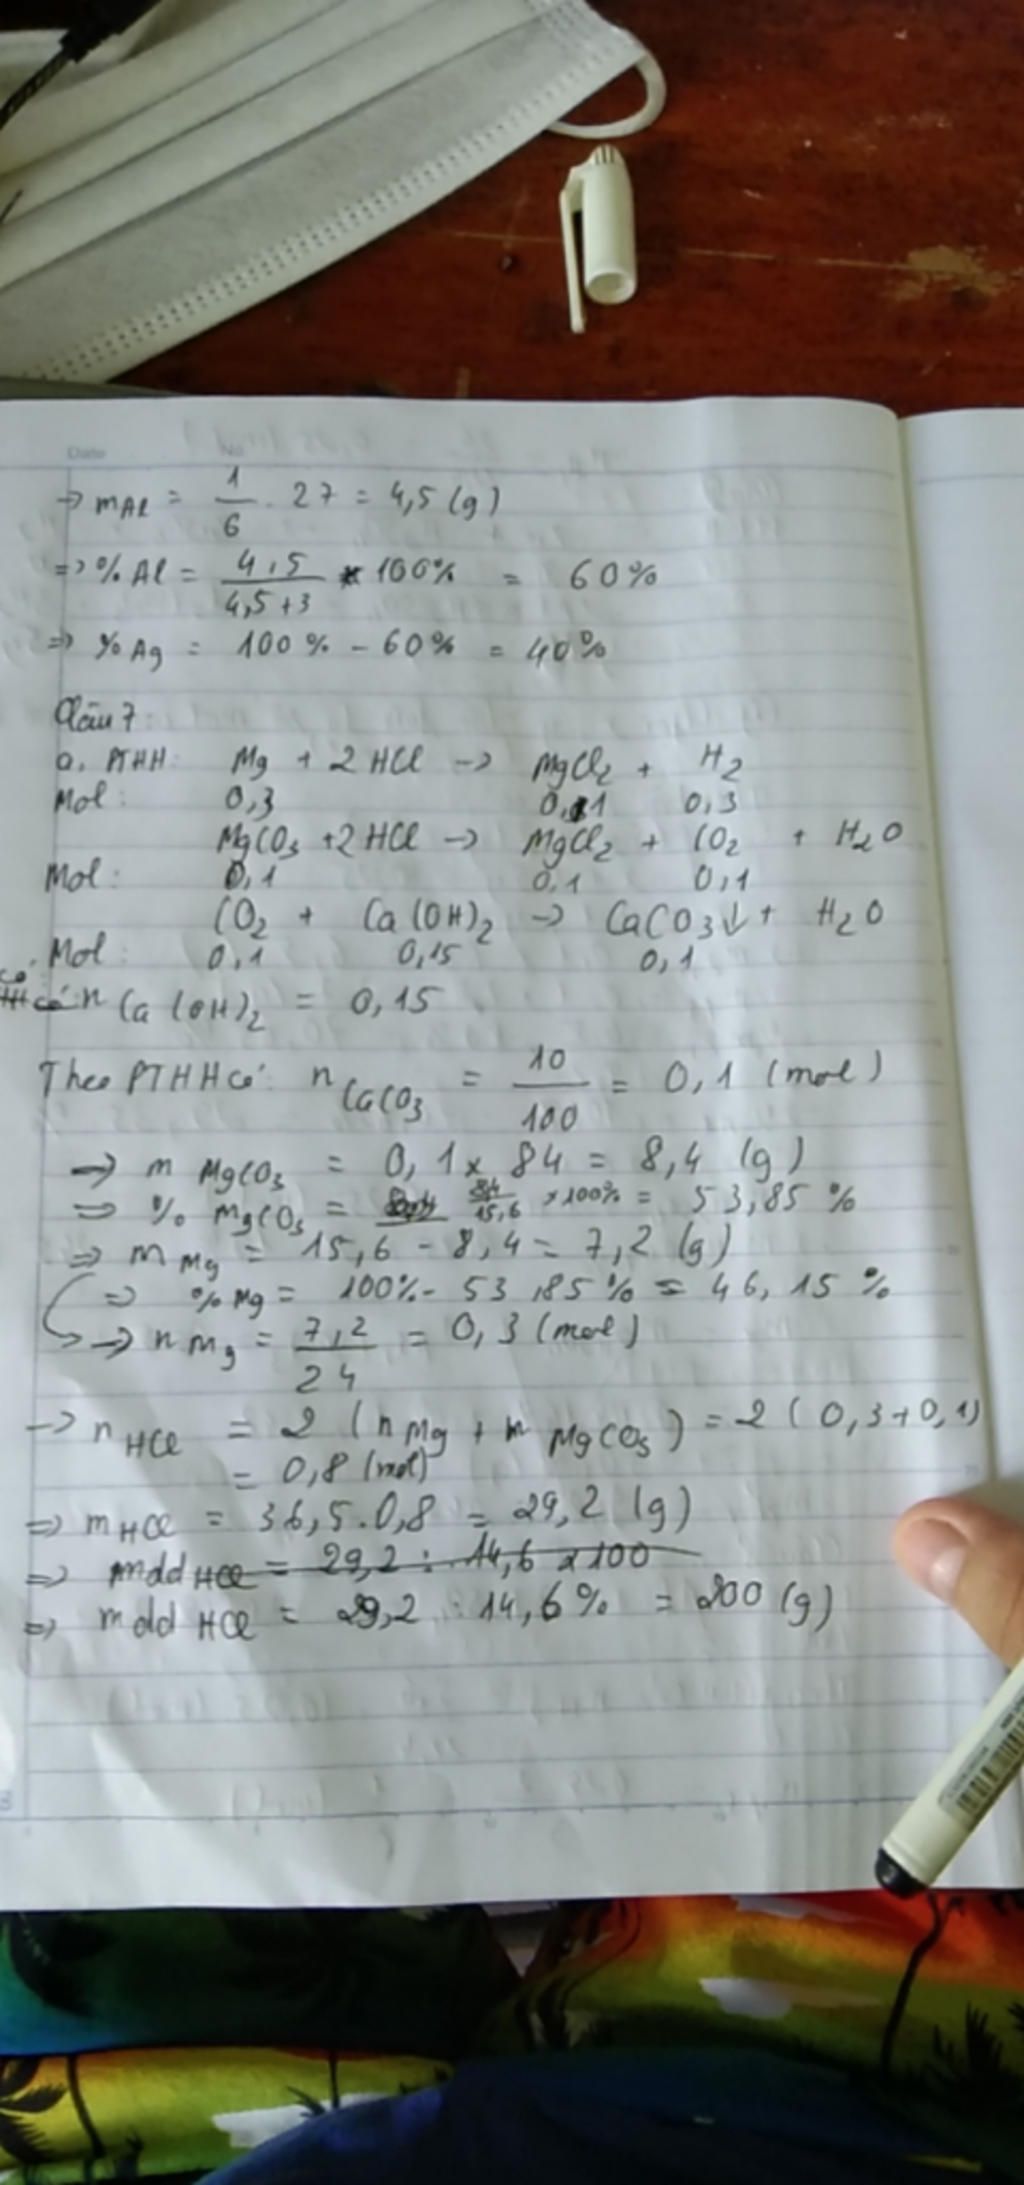 Date No
→ mAl = 1/6 . 27 = 4,5 (g)
=> % Al = 4,5/4,5+3 * 100% = 60%
=> % Ag = 100% - 60% = 40%
Câu 7:
a. PTHH: Mg + 2HCl -> MgCl2 + H2
Mol: 0,3 0,1 0,3
MgCO3 + 2HCl -> MgCl2 + CO2 + H2O
Mol: 0,1 0,1 0,1
CO2 + Ca(OH)2 -> CaCO3↓ + H2O
Mol: 0,1 0,15 0,1
có n Ca(OH)2 = 0,15
Theo PTHH có: n CaCO3 = 10/100 = 0,1 (mol)
-> m MgCO3 = 0,1 x 84 = 8,4 (g)
=> % MgCO3 = 8,4/15,6 x 100% = 53,85 %
=> m Mg = 15,6 - 8,4 = 7,2 (g)
=> % Mg = 100% - 53,85% = 46,15 %
-> n Mg = 7,2/24 = 0,3 (mol)
-> n HCl = 2 (n Mg + n MgCO3) = 2 (0,3+0,1)
= 0,8 (mol)
=> m HCl = 36,5.0,8 = 29,2 (g)
=> mdd HCl = 29,2 : 14,6 x 100
=> mdd HCl = 29,2 : 14,6% = 200 (g)